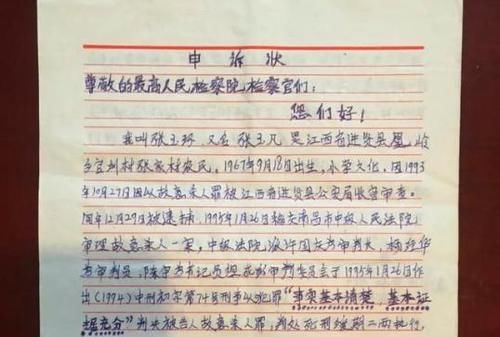 申诉状
尊敬的最高人民检察院检察官们：
您们好！
我叫张玉环，又名张玉凡，是江西省进贤县凰岭
乡官圳村张家村农民，1967年9月18日出生，小学文化，因1993
年10月27日因以故意杀人罪被江西省进贤县公安局收容审查。
同年12月29日被逮捕，1995年1月26日南昌市中级人民法院
审理故意杀人一案，中级法院
审判员，书记员担任1995年1月26日作
出(1994)中刑初字第74号刑事以犯罪“事实基本清楚，基本证
据充分”判决被告人故意杀人罪，判处死刑缓期二两执行，